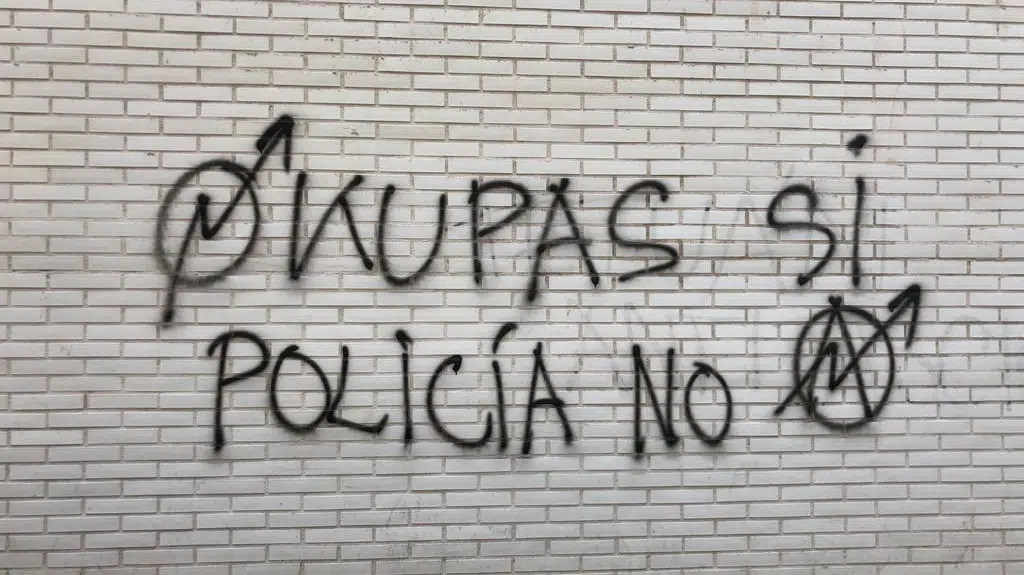 OKUPAS SI
POLICÍA NO